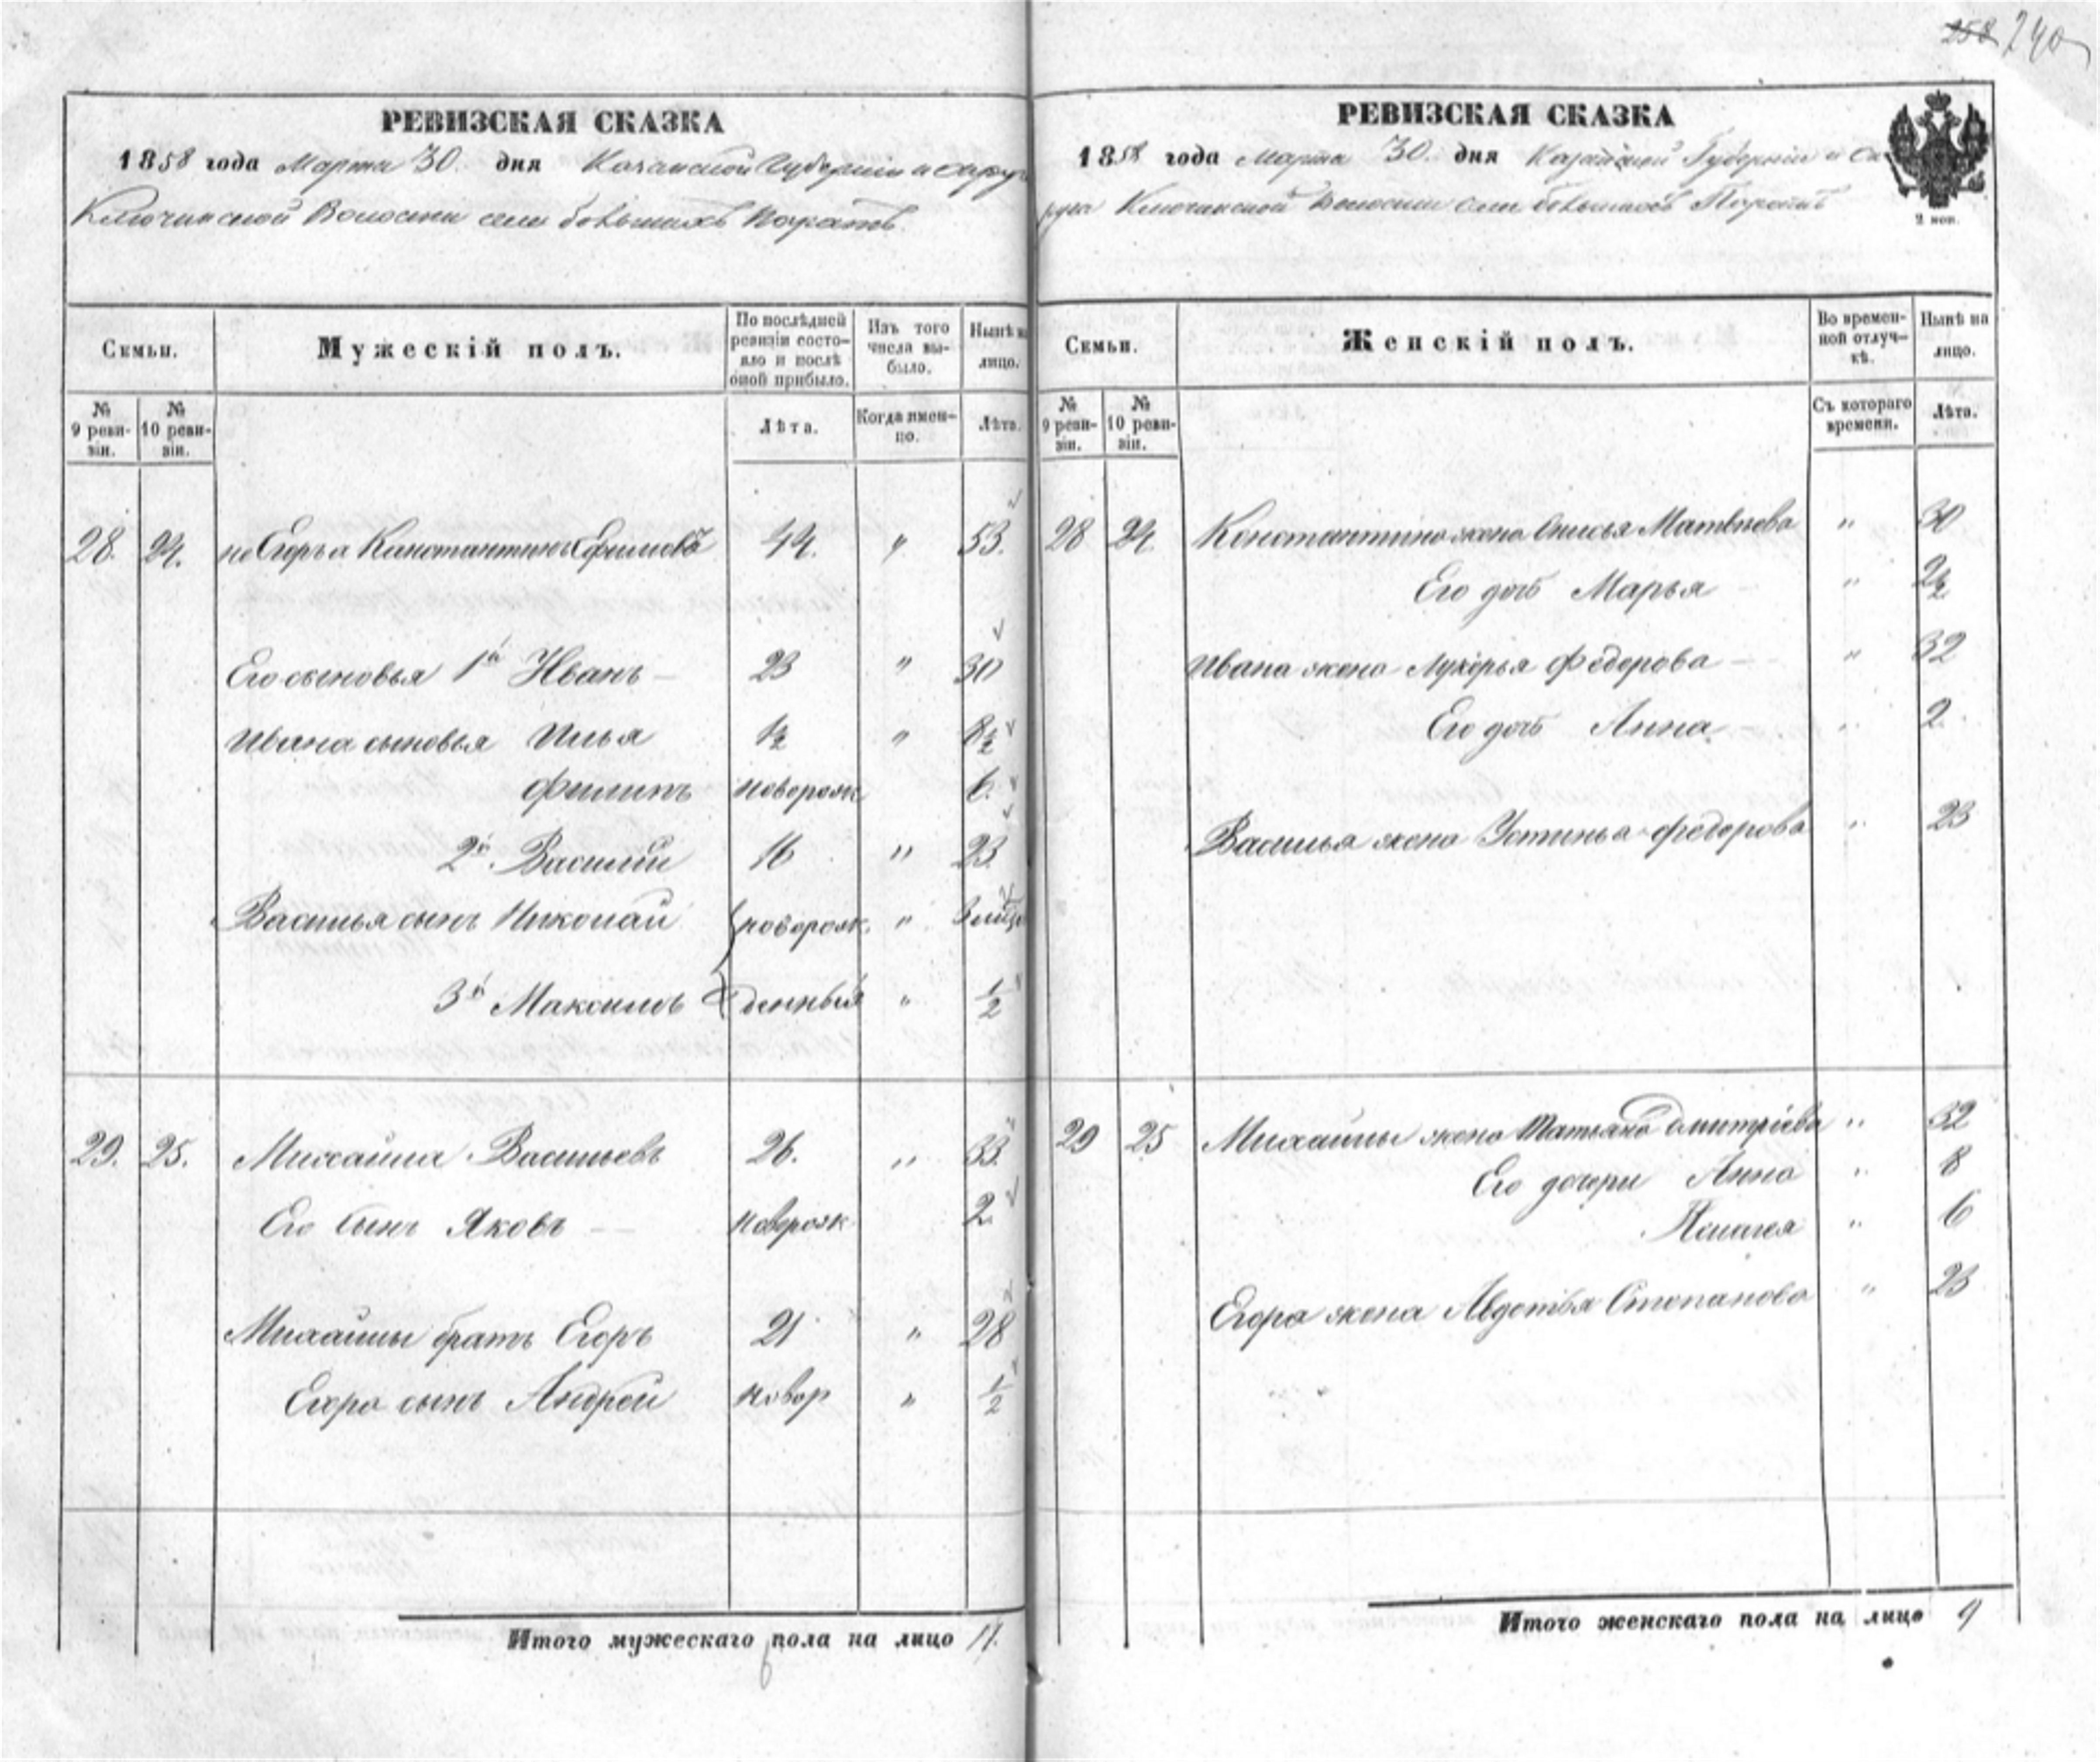 258 240
РЕВИЗСКАЯ СКАЗКА
1858 года Марта 30. дня Казанской Губерніи и Округ
Ключинской Волости села большихъ
Семьи.
Мужескій полъ.
По послѣдней ревизіи состояло и послѣ оной прибыло.
Изъ того числа выбыло.
Нынѣ на лицо.
№ 9 ревизіи.
№ 10 ревизіи.
Лѣта.
Когда именно.
Лѣта.
28. 24. Константинъ Ефимовъ 44. " 53.
Его сыновья 1й Иванъ — 23 " 30
Ивана сыновья Илья 1½ " 8½
Филипъ новорож 6.
2й Василій 16 " 23.
Василья сынъ Николай новорож. "
3й Максимъ денныя " ½
29. 25. Михайла Васильевъ 26. " 33.
Его сынъ Яковъ — новорож 2.
Михайлы братъ Егоръ 21 " 28
Егора сынъ Андрей новор " ½
Итого мужескаго пола на лицо 11.
РЕВИЗСКАЯ СКАЗКА
1858 года Марта 30. дня Казанской Губерніи и Ок
руга Ключинской Волости села большихъ
2 коп.
Семьи.
Женскій полъ.
Во временной отлучкѣ.
Нынѣ на лицо.
№ 9 ревизіи.
№ 10 ревизіи.
Съ котораго времени.
Лѣта.
28 24. Константина жена Анисья Матвѣева " 30
Его дочь Марья — " 2½
Ивана жена Лукерья Федорова — " 32
Его дочь Анна — " 2.
Василья жена Устинья Федорова " 23
29 25 Михайлы жена Татьяна Дмитріева " 32
Его дочери Анна " 8
Пелагея " 6
Егора жена Авдотья Степанова " 23
Итого женскаго пола на лицо 9